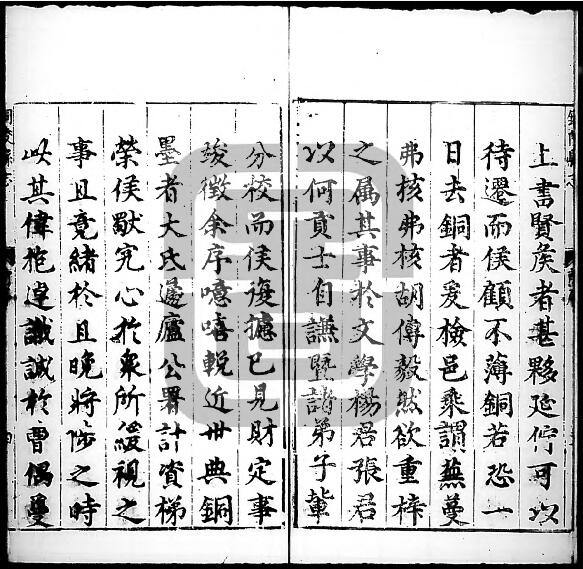 上書賢矦者甚夥延佇可以
待遷而侯顧不薄銅若恐一
日去銅者爰檢邑乘謂蕪蔓
弗核弗核胡傳毅然欲重梓
之属其事於文學楊君張君
以何貢士自謙暨諸弟子軰
分校而侯復攄己見財定事
竣徵余序噫嘻輓近世典銅
墨者大氐廬公署計資梯
榮侯究心於衆所緩視之
事且竟緒於旦晩將陟之時
以其偉抱識誠於曹偶